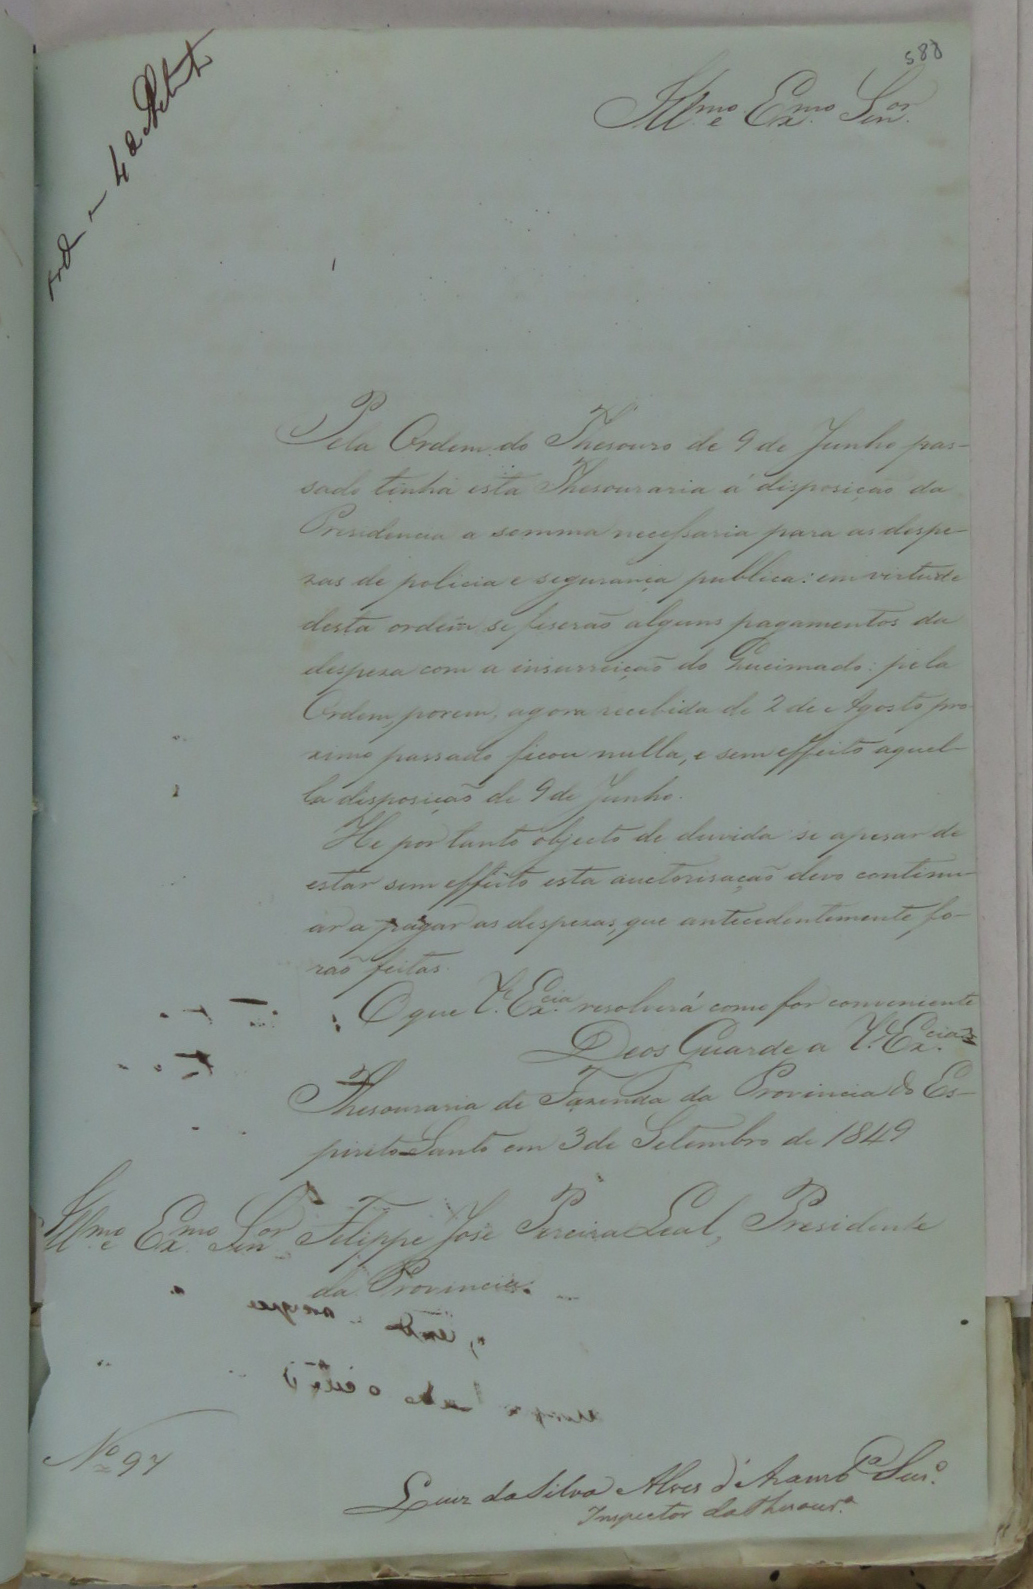 588
Ill.mo e Ex.mo Sen.or
Pela Ordem do Thesouro de 9 de Junho pas-
sado tinha esta Thesouraria á disposição da
Presidencia a somma necessaria para as despe-
zas de policia e segurança publica: em virtude
desta ordem se fiserão alguns pagamentos da
despeza com a insurreição do Queimado: pela
Ordem, porem, agora recebida de 2 de Agosto pro-
ximo passado ficou nulla, e sem effeito aquel-
la disposição de 9 de Junho.
He por tanto objecto de duvida se apesar de
estar sem effeito esta auctorisação devo continu-
ar a pagar as despezas, que antecedentemente fo-
rão feitas.
O que V. Ex.cia resolverá como for conveniente
Deos Guarde a V. Ex.cia
Thesouraria de Fazenda da Provincia do Es-
pirito Santo em 3 de Setembro de 1849
Ill.mo e Ex.mo Sen.or Filippe José Pereira Leal, Presidente
da Provincia.
N.o 97
Luiz da Silva Alves d'Azamb.a Sus.o
Inspector da Thesour.a